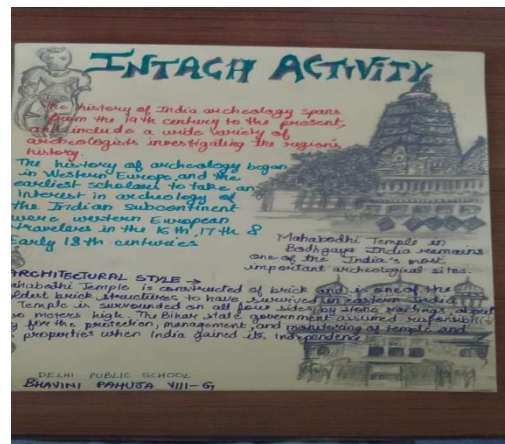 INTACH ACTIVITY
The history of India archeology spans
from the 19th century to the present,
and include a wide variety of
archeologists investigating the region's
history.
The history of archeology began
in Western Europe, and the
earliest scholars to take an
Interest in archeology of
the Indian Subcontinent
were western European
travelers in the 16th, 17th &
Early 18th centuries
Mahabodhi Temple in
Bodhgaya India remains
one of the India's most
important archeological sites.
ARCHITECTURAL STYLE →
ahabodhi Temple is constructed of brick and is one of the
oldest brick structures to have survived in eastern India
Temple is surrounded on all four sides by stone railings, about
wo meters high. The Bihar state government assumed responsibili-
y for the protection, management, and monitoring of temple and
properties when India gained its Independence
DELHI PUBLIC SCHOOL
BHAVINI PAHUJA VIII-G